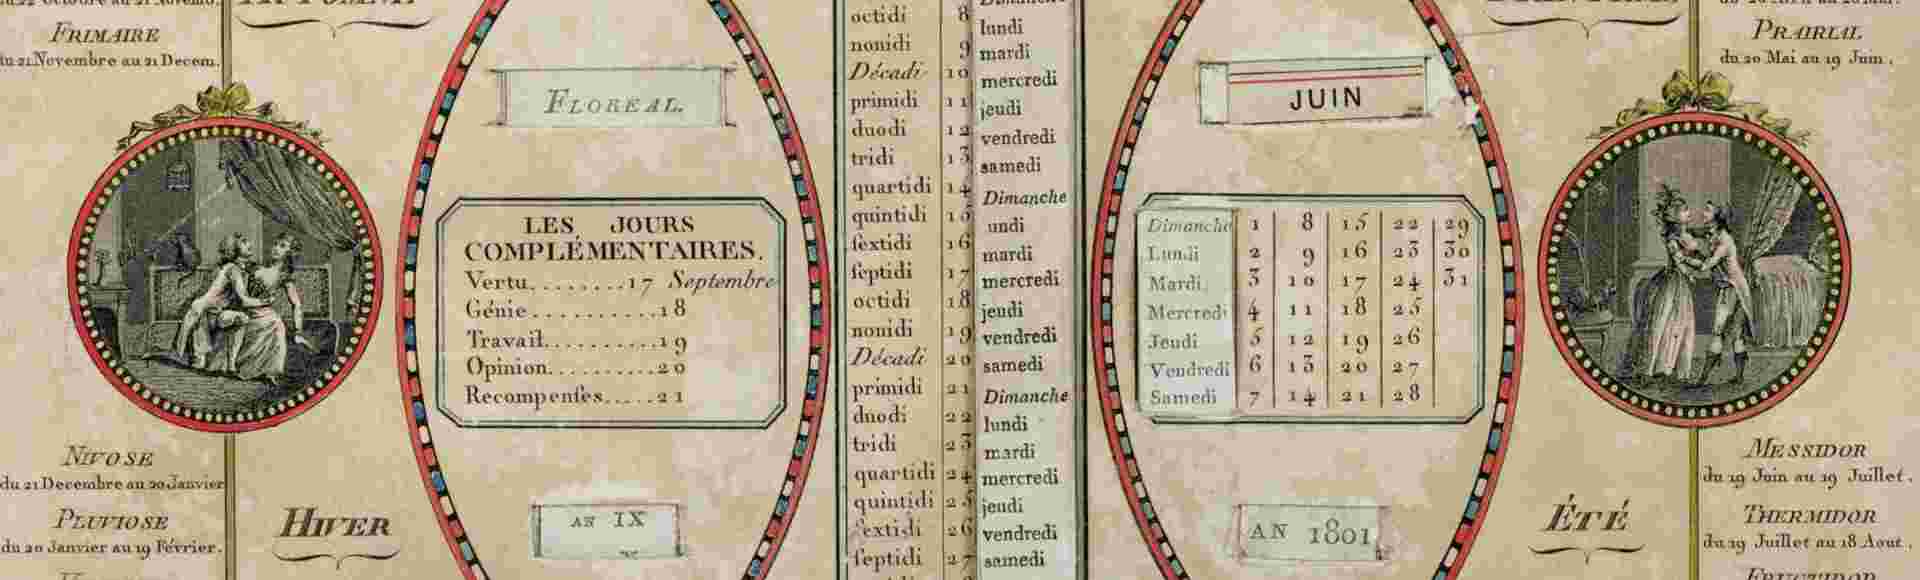 FRIMAIRE
du 21 Novembre au 21 Decem.
NIVOSE
du 21 Decembre au 20 Janvier
PLUVIOSE
du 20 Janvier au 19 Février.
HIVER
FLOREAL.
LES JOURS
COMPLÉMENTAIRES.
Vertu........17 Septembre
Génie...........18
Travail..........19
Opinion..........20
Recompenſes.....21
AN IX
octidi 8
nonidi 9
Décadi 10
primidi 11
duodi 12
tridi 13
quartidi 14
quintidi 15
ſextidi 16
ſeptidi 17
octidi 18
nonidi 19
Décadi 20
primidi 21
duodi 22
tridi 23
quartidi 24
quintidi 25
ſextidi 26
ſeptidi 27
Dimanche
lundi
mardi
mercredi
jeudi
vendredi
samedi
Dimanche
undi
mardi
mercredi
jeudi
vendredi
samedi
Dimanche
lundi
mardi
mercredi
jeudi
vendredi
samedi
JUIN
Dimanche 1 8 15 22 29
Lundi 2 9 16 23 30
Mardi 3 10 17 24 31
Mercredi 4 11 18 25
Jeudi 5 12 19 26
Vendredi 6 13 20 27
Samedi 7 14 21 28
AN 1801
PRAIRIAL
du 20 Mai au 19 Juin.
MESSIDOR
du 19 Juin au 19 Juillet.
THERMIDOR
du 19 Juillet au 18 Aout.
ÉTÉ